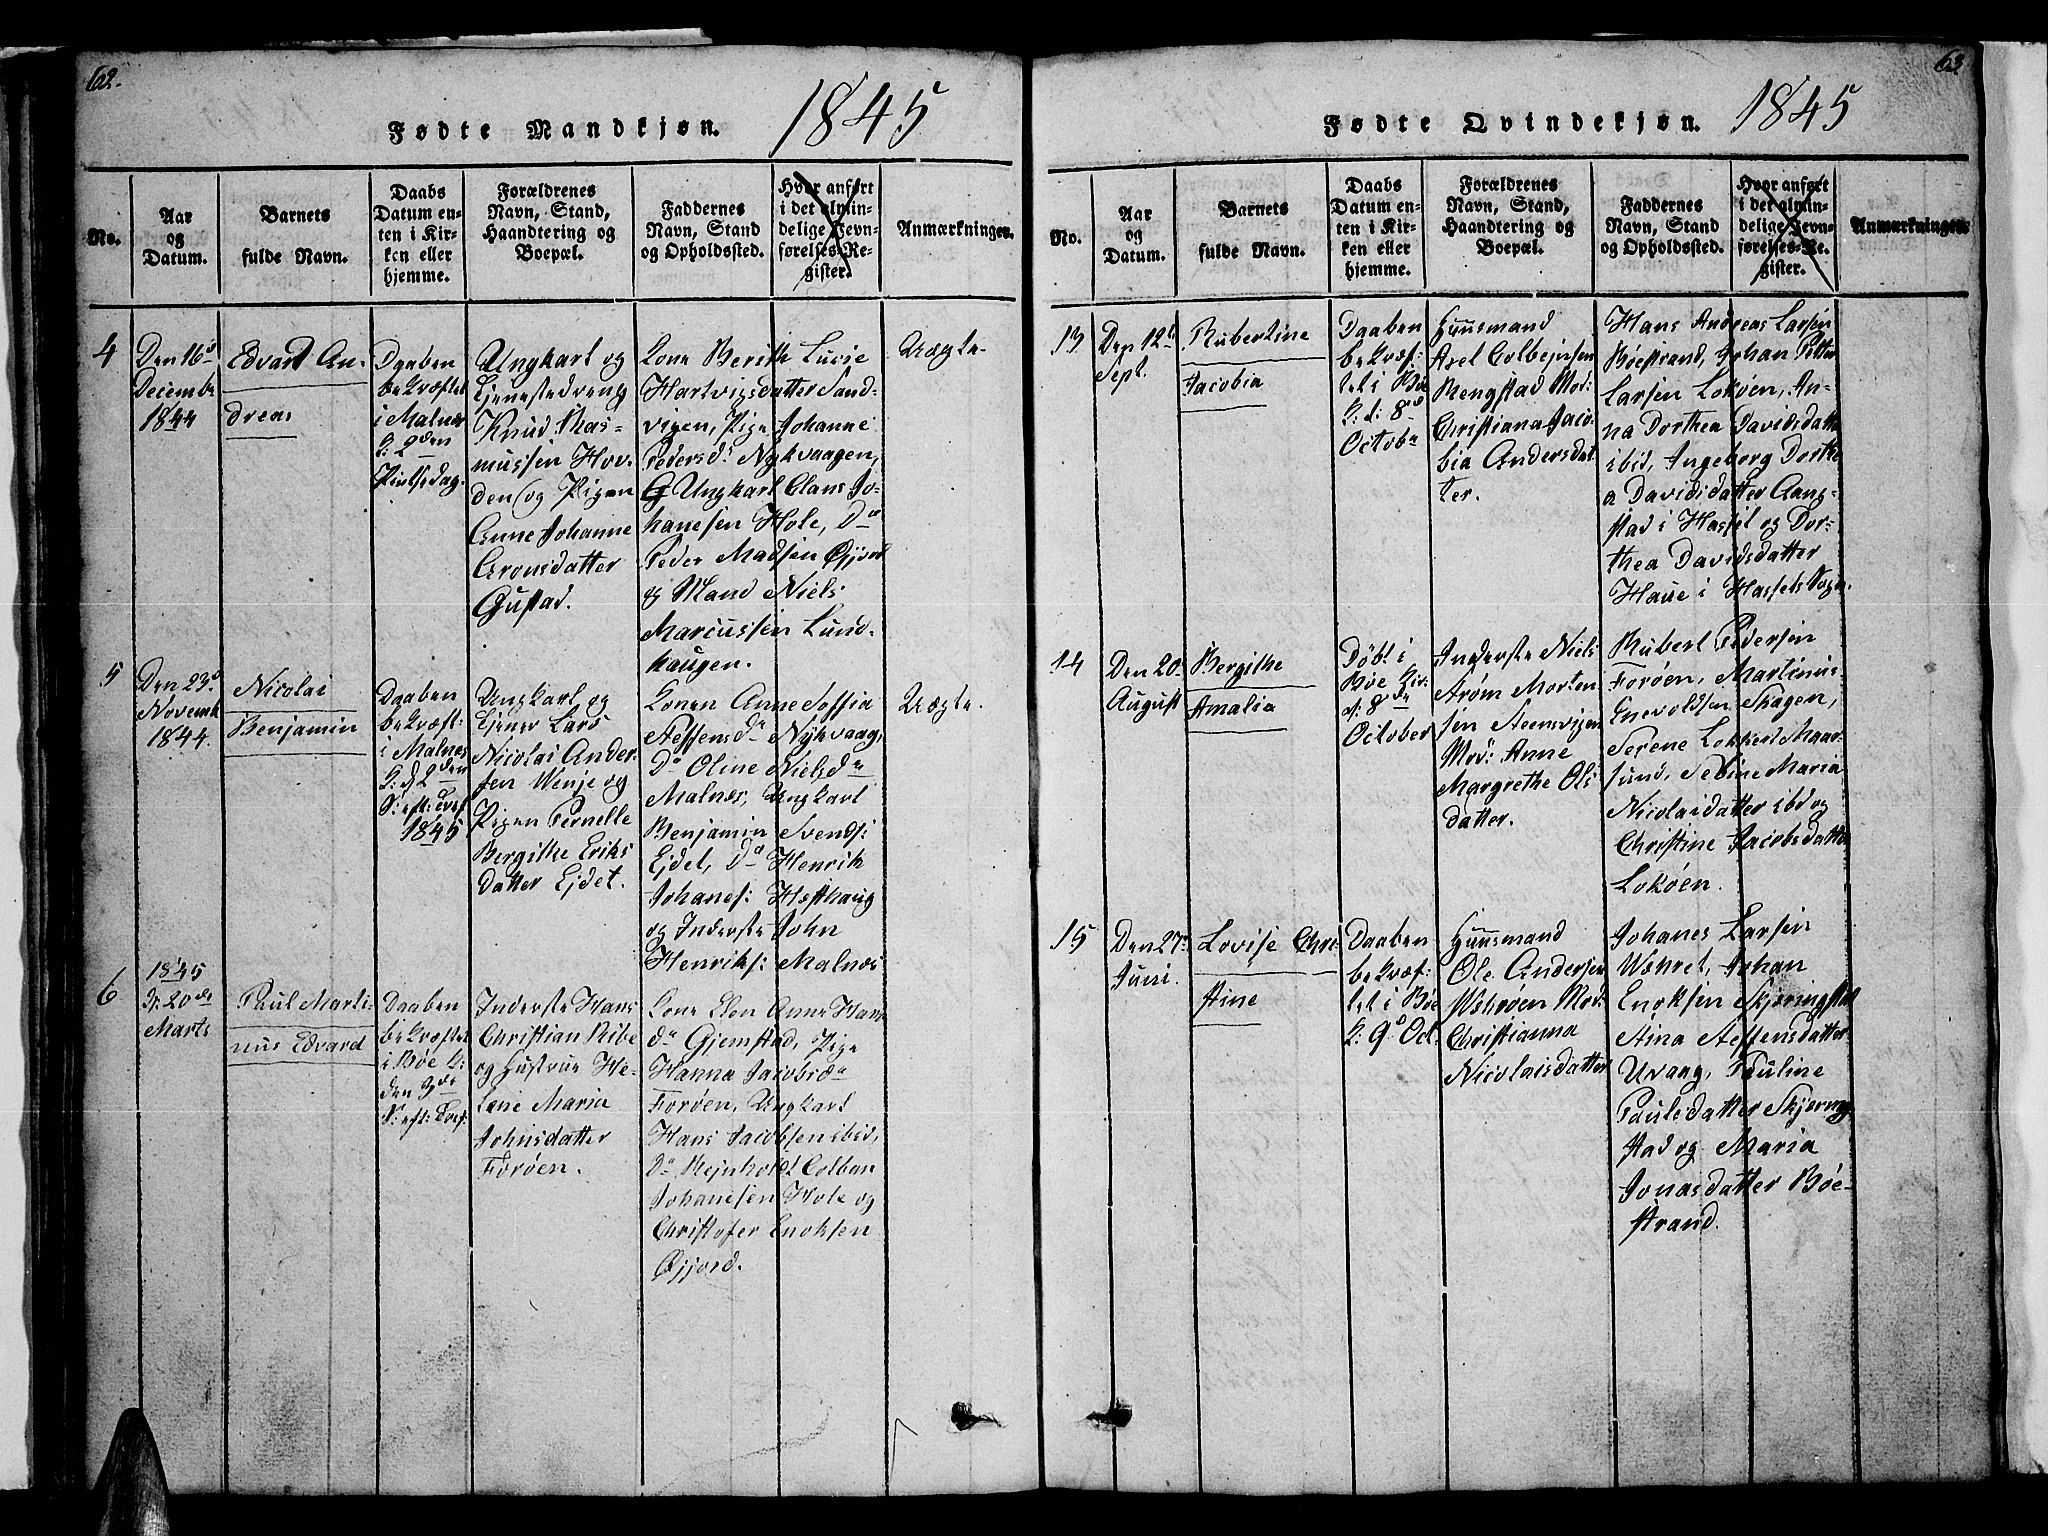 62.
Fødte Mandkjøn. 1845
No.
Aar
og
Datum.
Barnets
fulde Navn.
Daabs
Datum en-
ten i Kir-
ken eller
hjemme.
Forældrenes
Navn, Stand,
Haandtering og
Boepæl.
Faddernes
Navn, Stand
og Opholdssted.
Hvor anført
i det almin-
delige Jevn-
førelses-Re-
gister.
Anmærkninger.
4
Den 16d
December
1844
Edvard An-
dreas
Daaben
bekræftet
i Malnæs
K: 2den
Pintsedag.
Ungkarl og
Tjenestedreng
Knud Ras-
mussen Hov-
den og Pigen
Anne Johanne
Aronsdatter
Gustad.
Kone Berith Lucie
Hartvigsdatter Sand-
vigen, Pige Johanne
Pedersdr Nykvaagen,
Ungkarl Clans Jo-
hanesen Hole, Do
Peder Madsen Øjjord
og Mand Niels
Marcussen Lund-
haugen.
Uægte.
5
Den 23d
Novemb
1844.
Nicolai
Benjamin
Daaben
bekræft-
i Malnæs
K: d 2den
S: eft: Tref
1845
Ungkarl og
Tjener Lars
Nicolai Ander-
sen Wenje og
Pigen Pernelle
Bergithe Eriks
datter Ejdet.
Konen Anne Soffia
Steffensdr Nykvaag,
Do Oline Nielsdr
Malnæs, Ungkarl
Benjamin Svends:
Ejdet, Do Henrik
Johanes: Hæsthaug
og Inderste John
Henriks: Malnæs
Uægte.
6
1845
D: 20de
Marts
Paul Marti-
nus Edvard
Daaben
bekræftet
i Bøe K:
den 3die
S: eft: Tref:
Inderste Hans
Christian Ribe
og Hustrue He-
lene Maria
Johnsdatter
Forøen.
Kone Elen Anna Hans
dr Gjemstad, Pige
Hanna Jacobsdr
Forøen, Ungkarl
Hans Jacobsen ibid,
Do Rejnholdt Colban
Johanesen Hole og
Christofer Enoksen
Øjjord.
63
Fødte Qvindekjøn. 1845
No.
Aar
og
Datum.
Barnets
fulde Navn.
Daabs
Datum en-
ten i Kir-
ken eller
hjemme.
Forældrenes
Navn, Stand,
Haandtering og
Boepæl.
Faddernes
Navn, Stand
og Opholdssted.
Hvor anført
i det almin-
delige Jevn-
førelses-Re-
gister.
Anmærkninger.
13
Den 12t
Sept.
Rubertine
Jacobia
Daaben
bekræf-
tet i Bøe
K: d: 8d
Octobr
Huusmand
Axel Colbejnsen
Rengstad Mod:
Christiana Jaco-
bia Andersdat-
ter.
Hans Andreas Larsen
Bøestrand, Johan Petter
Larsen Lokøen, An-
na Dorthea Davidsdatter
ibid, Ingeborg Dorthe
a Davidsdatter Aang-
stad i Hassel og Dor-
thea Davidsdatter
Haue i Hassels Sogn.
14
Den 20
August
Bergithe
Amalia
Døbt i
Bøe Kir:
d: 8de
October
Inderste Niels
Strøm Morten
sen Steensvigen
Mod: Anne
Margrethe Ols
datter.
Rubert Pedersen
Forøen, Martinus
Enevoldsen Skagen,
Serene Lokkert Maar-
sund, Sebine Maria
Nicolaisdatter ibd og
Christine Jacobsdatter
Lokøen.
15
Den 27
Juni.
Lovise Chri-
stine
Daaben
bekræf-
tet i Bøe
K: 9d Oct.
Huusmand
Ole Andersen
Mod:
Christianna
Nicolaisdatter
Johanes Larsen
Johan
Enoksen Skjeringstad
Stina Steffensdatter
Uvaag, Pauline
Paulsdatter Skjering-
stad og Maria
Jonasdatter Bøe-
strand.